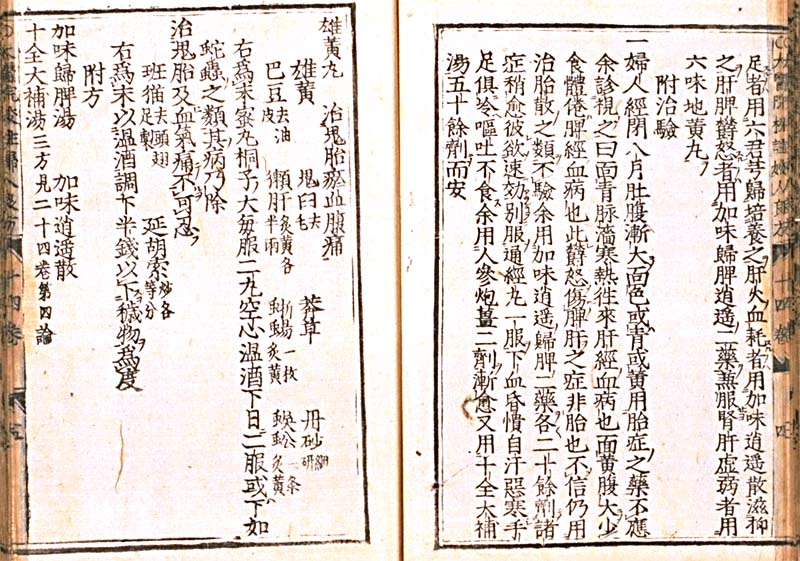 足者用六君芎歸培養之肝火血耗者用加味逍遥散滋抑
之肝脾欝怒者用加味歸脾逍遥二藥兼服腎肝虚弱者用
六味地黄丸
附治驗
一婦人經閉八月肚腹漸大面色或青或黄用胎症之藥不應
余診視之曰面青脉濇寒熱往來肝經血病也面黄腹大少
食體倦脾經血病也此欝怒傷脾肝之症非胎也不信仍用
治胎散之類不驗余用加味逍遥歸脾二藥各二十餘劑諸
症稍愈彼欲速効别服通經丸一服下血昏憒自汗惡寒手
足俱冷嘔吐不食余用人參炮薑二劑漸愈又用十全大補
湯五十餘劑而安
雄黄丸　治鬼胎瘀血腹痛
雄黄　鬼臼去毛　莽草　丹砂細研
巴豆去皮油　獺肝炙黄各半兩　蜥蜴一枚炙黄　蜈蚣一条炙黄
右爲末蜜丸桐子大每服二丸空心温酒下日二服或下如
蛇蟲之類其病乃除
治鬼胎及血氣痛不可忍
班猫去頭翅足製　延胡索炒各等分
右爲末以温酒調下半錢以下穢物爲度
附方
加味歸脾湯　加味逍遥散
十全大補湯三方見二十四卷第四論
十四卷
四
十四卷
五